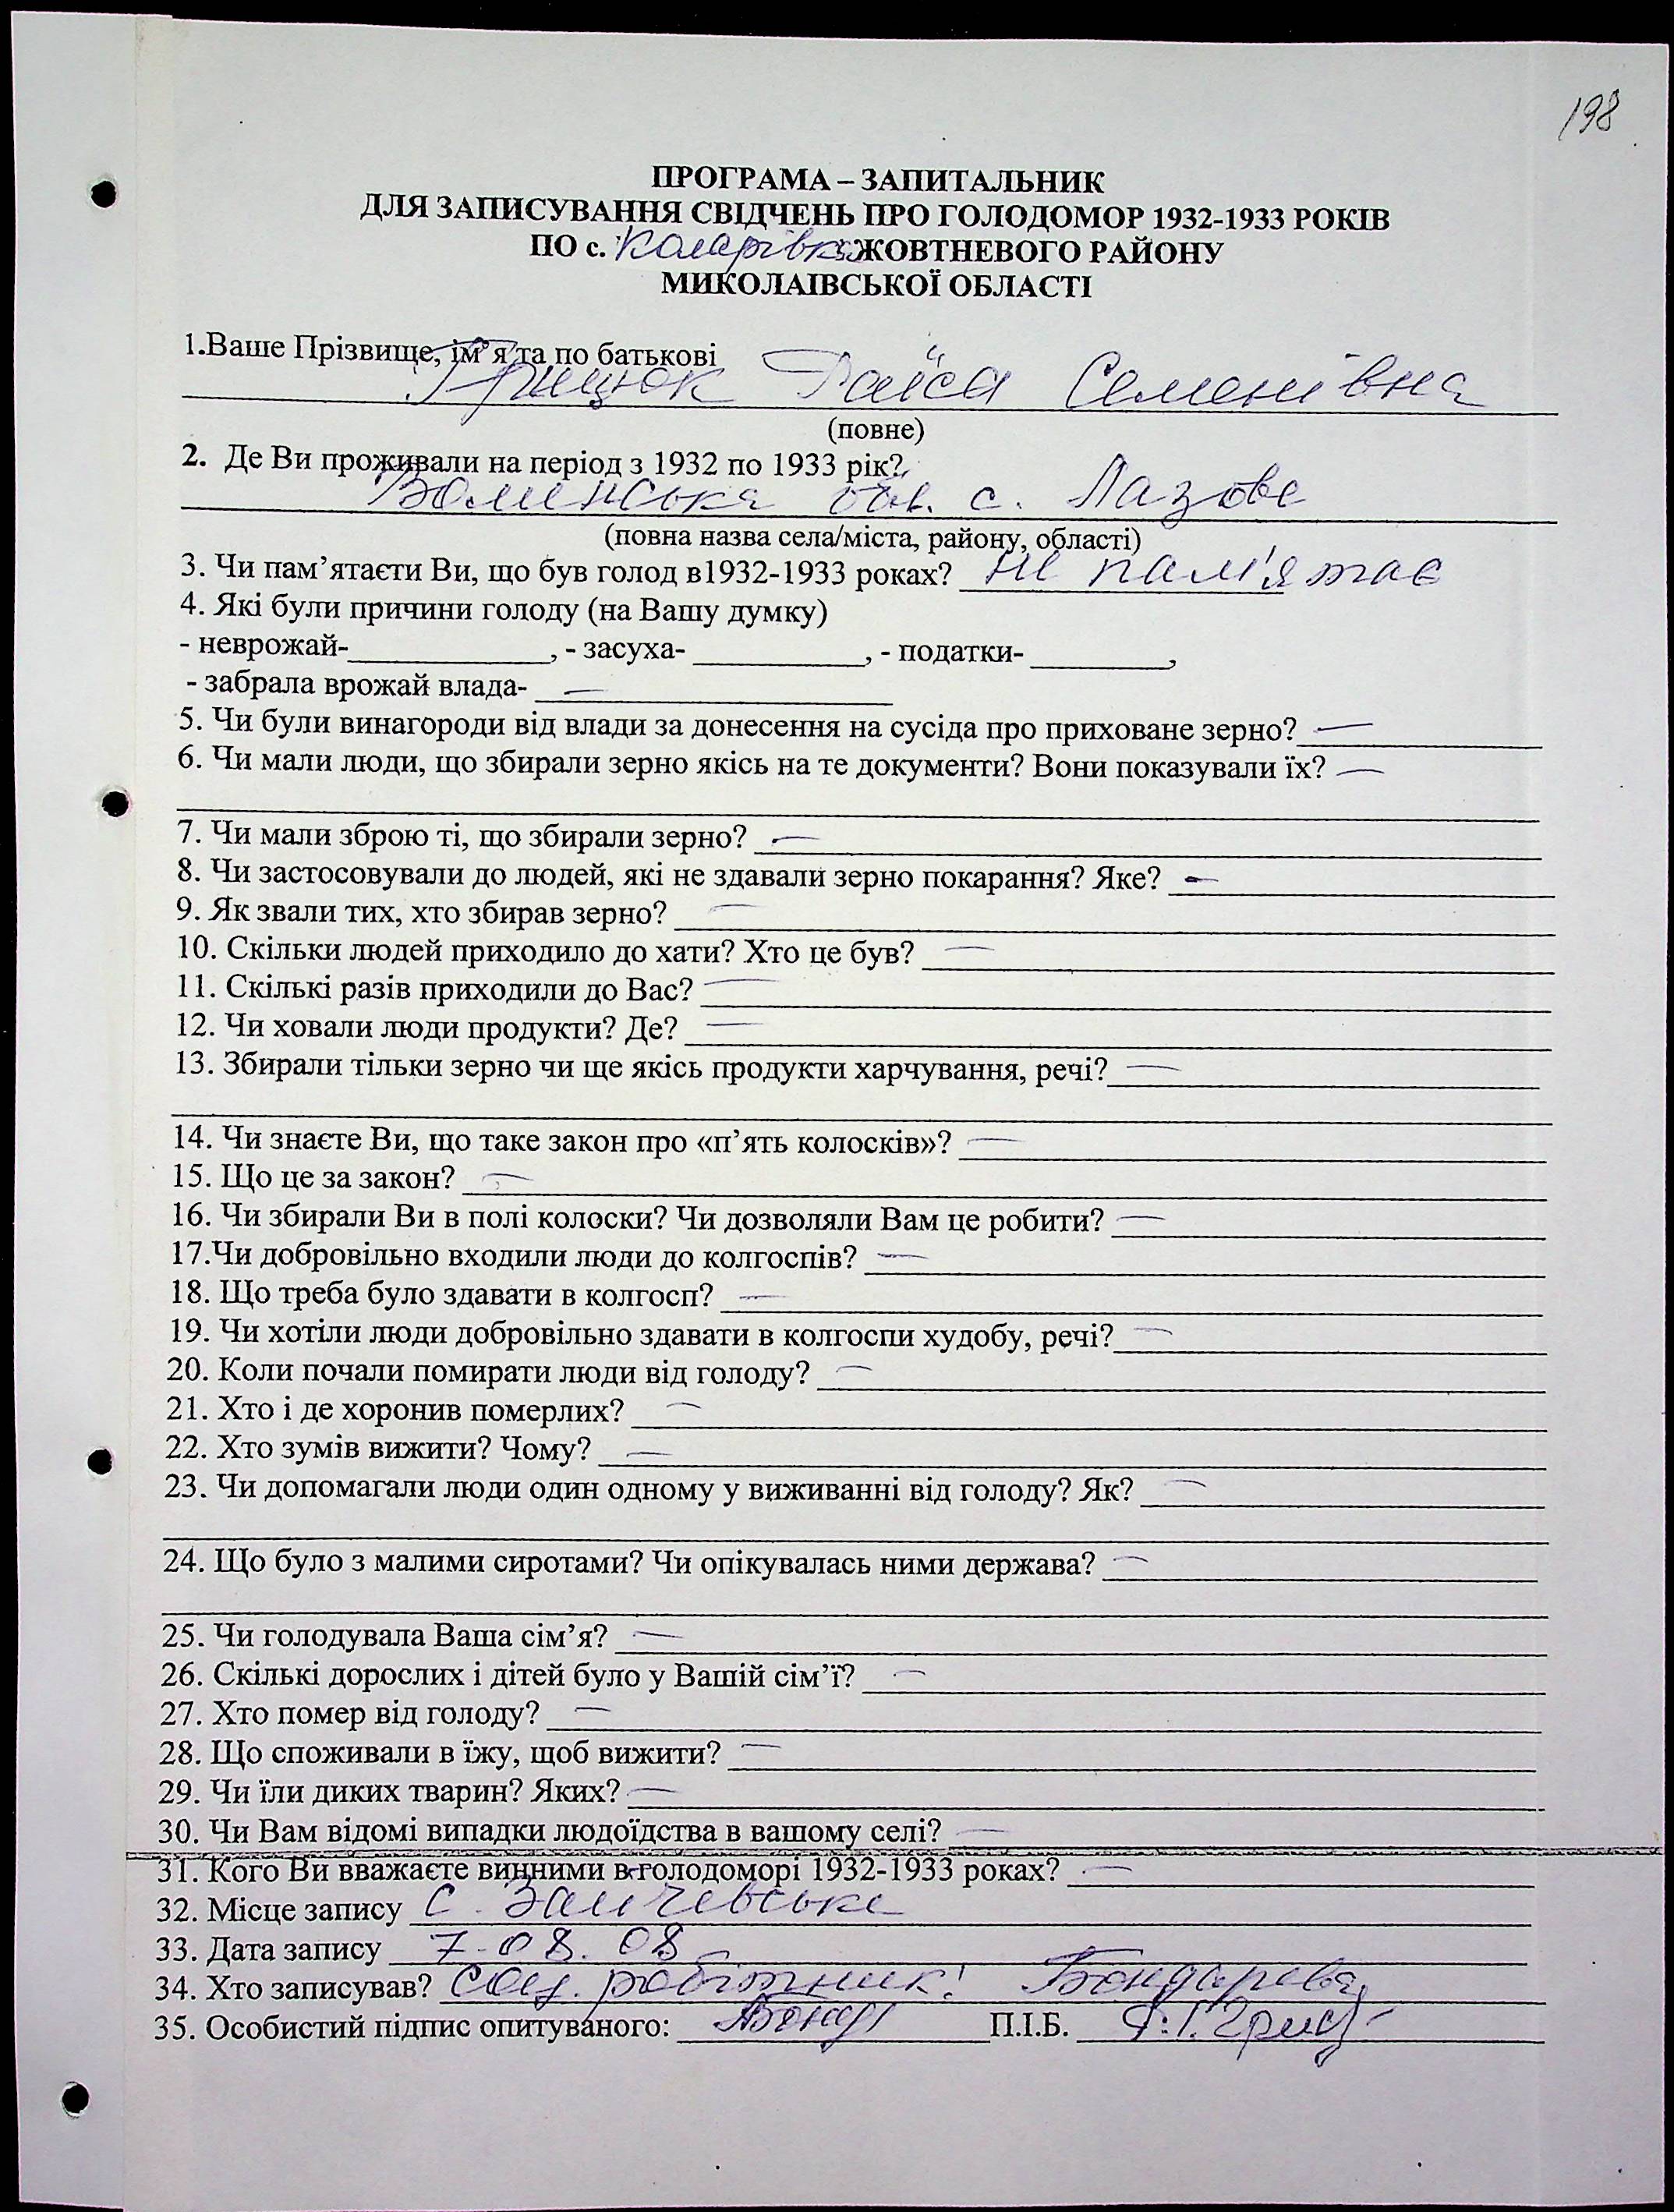 198
ПРОГРАМА – ЗАПИТАЛЬНИК
ДЛЯ ЗАПИСУВАННЯ СВІДЧЕНЬ ПРО ГОЛОДОМОР 1932-1933 РОКІВ
ПО с. Коларівка ЖОВТНЕВОГО РАЙОНУ
МИКОЛАІВСЬКОЇ ОБЛАСТІ
1.Ваше Прізвище, ім’я та по батькові
Грицюк Раїса Семенівна
(повне)
2. Де Ви проживали на період з 1932 по 1933 рік?
Волинська обл. с. Лазове
(повна назва села/міста, району, області)
3. Чи пам’ятаєти Ви, що був голод в1932-1933 роках? не пам'ятає
4. Які були причини голоду (на Вашу думку)
- неврожай-____________, - засуха- __________, - податки- ________,
- забрала врожай влада- —
5. Чи були винагороди від влади за донесення на сусіда про приховане зерно? —
6. Чи мали люди, що збирали зерно якісь на те документи? Вони показували їх? —
7. Чи мали зброю ті, що збирали зерно? —
8. Чи застосовували до людей, які не здавали зерно покарання? Яке? —
9. Як звали тих, хто збирав зерно? —
10. Скільки людей приходило до хати? Хто це був? —
11. Скількі разів приходили до Вас? —
12. Чи ховали люди продукти? Де? —
13. Збирали тільки зерно чи ще якісь продукти харчування, речі? —
14. Чи знаєте Ви, що таке закон про «п’ять колосків»? —
15. Що це за закон? —
16. Чи збирали Ви в полі колоски? Чи дозволяли Вам це робити? —
17.Чи добровільно входили люди до колгоспів? —
18. Що треба було здавати в колгосп? —
19. Чи хотіли люди добровільно здавати в колгоспи худобу, речі? —
20. Коли почали помирати люди від голоду? —
21. Хто і де хоронив померлих? —
22. Хто зумів вижити? Чому? —
23. Чи допомагали люди один одному у виживанні від голоду? Як? —
24. Що було з малими сиротами? Чи опікувалась ними держава? —
25. Чи голодувала Ваша сім’я? —
26. Скількі дорослих і дітей було у Вашій сім’ї? —
27. Хто помер від голоду? —
28. Що споживали в їжу, щоб вижити? —
29. Чи їли диких тварин? Яких? —
30. Чи Вам відомі випадки людоїдства в вашому селі? —
31. Кого Ви вважаєте винними в голодоморі 1932-1933 роках? —
32. Місце запису с.
33. Дата запису 7.08.08
34. Хто записував? соц. робітник! Бондарєва
35. Особистий підпис опитуваного: П.І.Б.